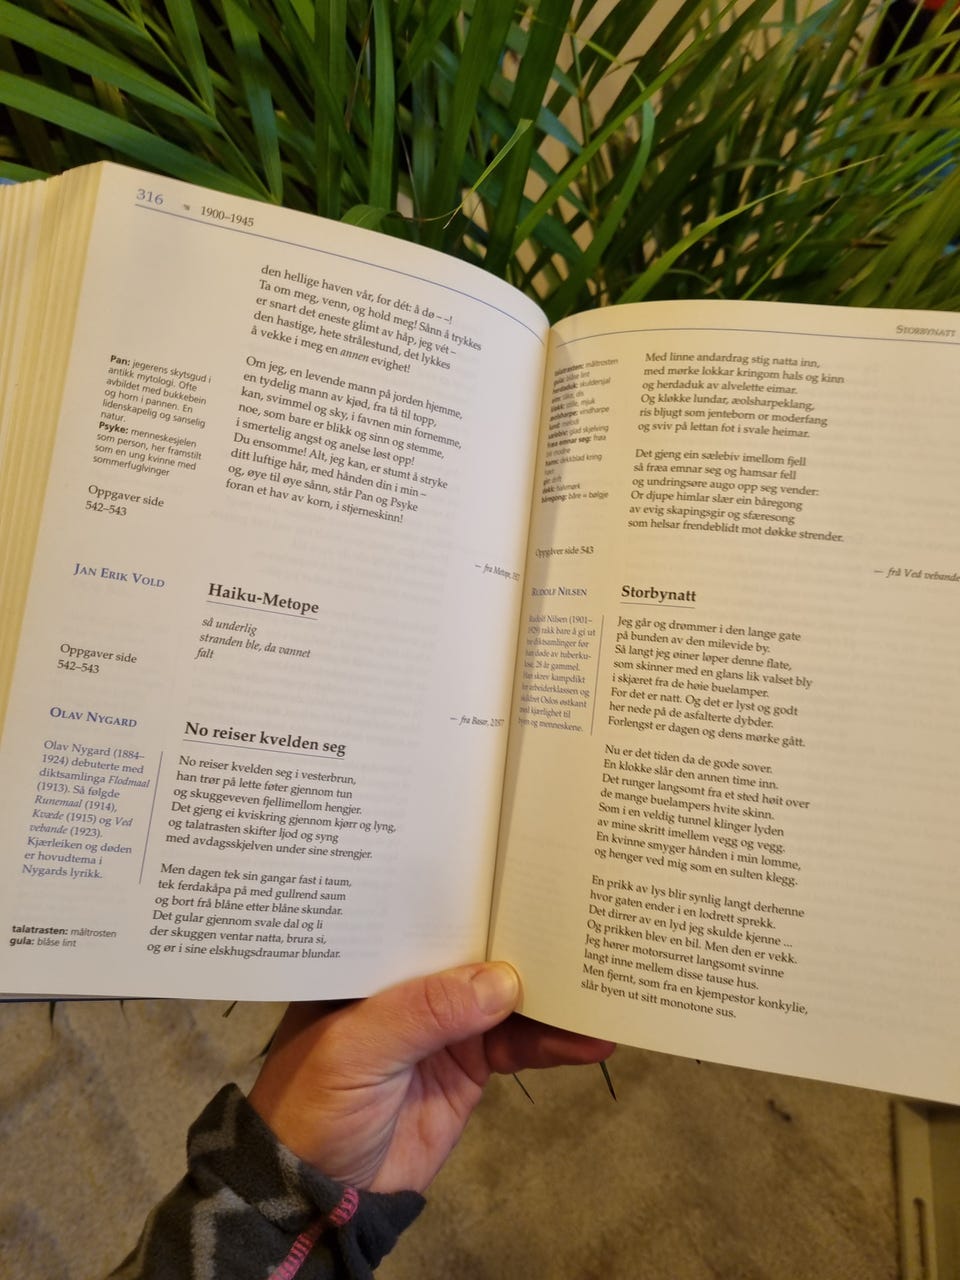 316 1900–1945
den hellige haven vår, for dét: å dø – –!
Ta om meg, venn, og hold meg! Sånn å trykkes
er snart det eneste glimt av håp, jeg vét –
den hastige, hete strålestund, det lykkes
å vekke i meg en annen evighet!
Om jeg, en levende mann på jorden hjemme,
en tydelig mann av kjød, fra tå til topp,
kan, svimmel og sky, i favnen min fornemme,
noe, som bare er blikk og sinn og stemme,
i smertelig angst og anelse løst opp!
Du ensomme! Alt, jeg kan, er stumt å stryke
ditt luftige hår, med hånden din i min –
og, øye til øye sånn, står Pan og Psyke
foran et hav av korn, i stjerneskinn!
Pan: jegerens skytsgud i
antikk mytologi. Ofte
avbildet med bukkebein
og horn i pannen. En
lidenskapelig og sanselig
natur.
Psyke: menneskesjelen
som person, her framstilt
som en ung kvinne med
sommerfuglvinger
Oppgaver side
542–543
— fra Metope,
JAN ERIK VOLD
Haiku-Metope
så underlig
stranden ble, da vannet
falt
Oppgaver side
542–543
— fra Basar,
OLAV NYGARD
Olav Nygard (1884–
1924) debuterte med
diktsamlinga Flodmaal
(1913). Så følgde
Runemaal (1914),
Kvæde (1915) og Ved
vebande (1923).
Kjærleiken og døden
er hovudtema i
Nygards lyrikk.
No reiser kvelden seg
No reiser kvelden seg i vesterbrun,
han trør på lette føter gjennom tun
og skuggeveven fjellimellom hengjer.
Det gjeng ei kviskring gjennom kjørr og lyng,
og talatrasten skifter ljod og syng
med avdagsskjelven under sine strengjer.
Men dagen tek sin gangar fast i taum,
tek ferdakåpa på med gullrend saum
og bort frå blåne etter blåne skundar.
Det gular gjennom svale dal og li
der skuggen ventar natta, brura si,
og ør i sine elskhugsdraumar blundar.
talatrasten: måltrosten
gula: blåse lint
STORBYNATT
Med linne andardrag stig natta inn,
med mørke lokkar kringom hals og kinn
og herdaduk av alvelette eimar.
Og kløkke lundar, æolsharpeklang,
ris bljugt som jenteborn or moderfang
og sviv på lettan fot i svale heimar.
Det gjeng ein sælebiv imellom fjell
så fræa emnar seg og hamsar fell
og undringsøre augo opp seg vender:
Or djupe himlar slær ein båregong
av evig skapingsgir og sfæresong
som helsar frendeblidt mot døkke strender.
talatrasten: måltrosten
gula: blåse lint
herdaduk: skuldersjal
æolsharpe: vindharpe
sælebiv: glad skjelving
fræa emnar seg: frøa
båregong: båre = bølgje
Oppgaver side 543
— frå Ved vebande
RUDOLF NILSEN
Rudolf Nilsen (1901–
1929) rakk bare å gi ut
diktsamlinger før
han døde av tuberku-
lose, 28 år gammel.
Han skrev kampdikt
for arbeiderklassen og
skildret Oslos østkant
med kjærlighet til
byen og menneskene.
Storbynatt
Jeg går og drømmer i den lange gate
på bunden av den milevide by.
Så langt jeg øiner løper denne flate,
som skinner med en glans lik valset bly
i skjæret fra de høie buelamper.
For det er natt. Og det er lyst og godt
her nede på de asfalterte dybder.
Forlengst er dagen og dens mørke gått.
Nu er det tiden da de gode sover.
En klokke slår den annen time inn.
Det runger langsomt fra et sted høit over
de mange buelampers hvite skinn.
Som i en veldig tunnel klinger lyden
av mine skritt imellem vegg og vegg.
En kvinne smyger hånden i min lomme,
og henger ved mig som en sulten klegg.
En prikk av lys blir synlig langt derhenne
hvor gaten ender i en lodrett sprekk.
Det dirrer av en lyd jeg skulde kjenne ...
Og prikken blev en bil. Men den er vekk.
Jeg hører motorsurret langsomt svinne
langt inne mellem disse tause hus.
Men fjernt, som fra en kjempestor konkylie,
slår byen ut sitt monotone sus.